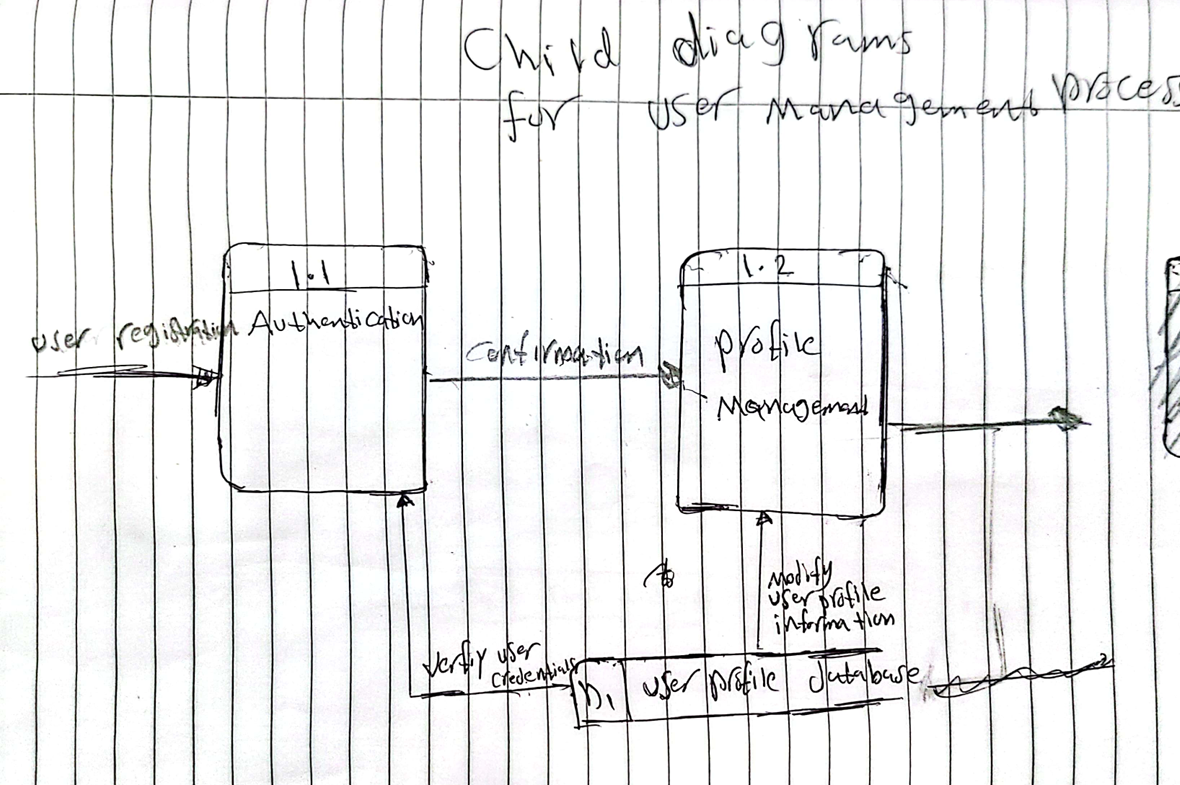 Child diagrams
for user Management process
1.1
Authentication
user registration
Confirmation
1.2
profile
Management
Modify
user profile
information
Verify user
credentials
D1
user profile database